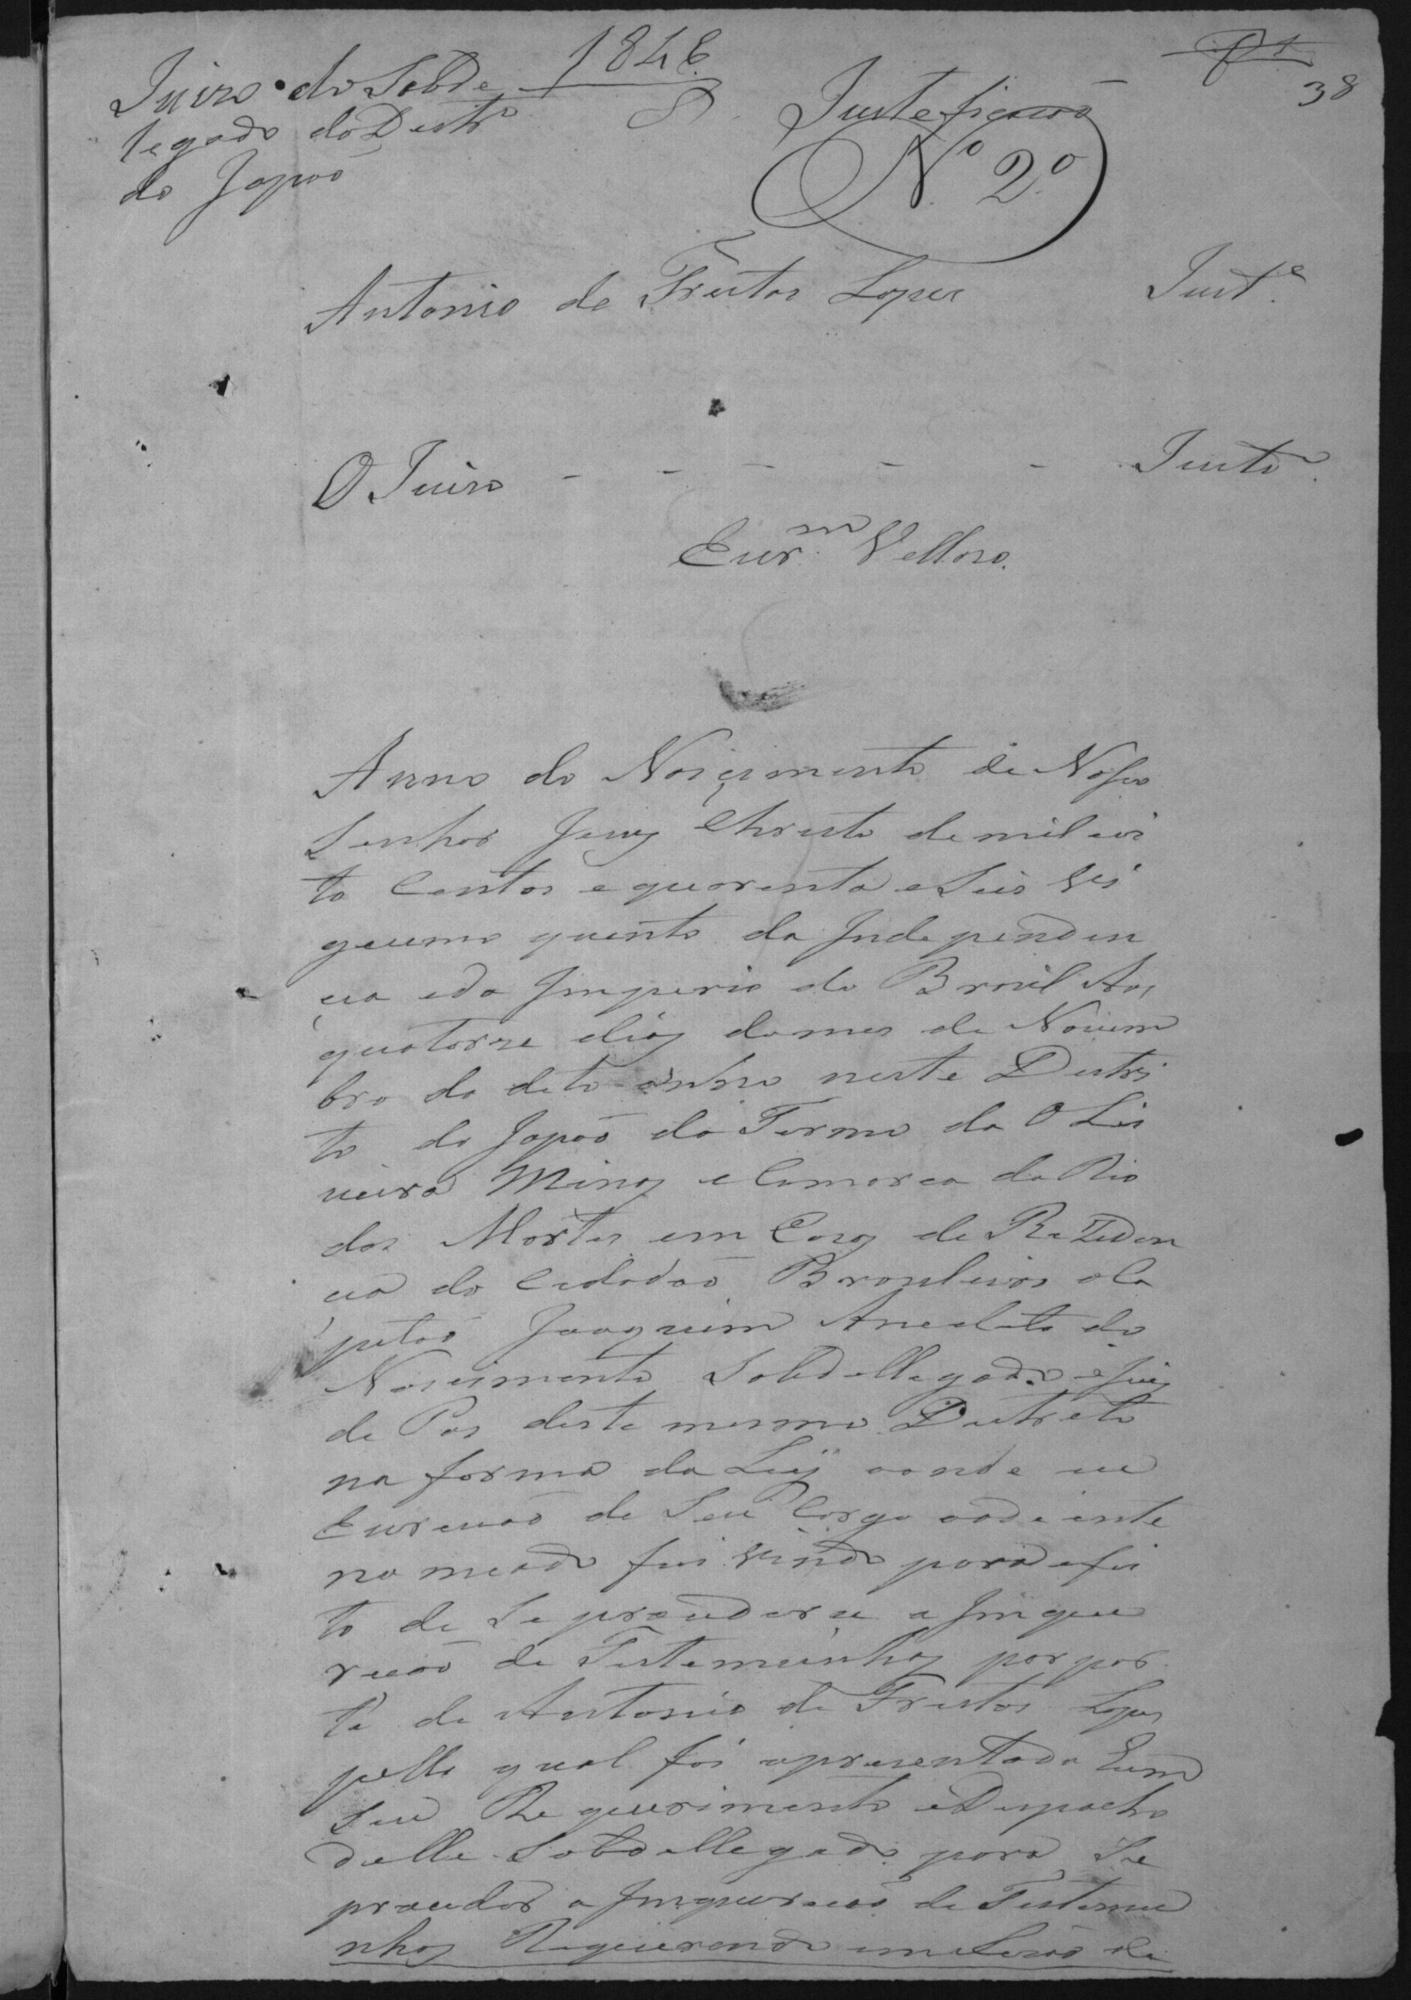 1846
38
Juizo do Sobde
legado do Destrº
do Japaõ
Justeficacaõ
Nº 2º
Antonio de Freitas Lopes Juste
O Juizo - - - - - Justº
Escrm Vellozo.
Anno do Nascimento de Nosso
Senhor Jezus Christo de mil oui
to Centos e quarenta e Seis Vis
gecimo quinto da Independen
cia e do Imperio do Brazil Aos
quatorze dias do mes de Novem
bro do dito anno neste Destri
to do Japaõ do Termo da Oli
veira Minas e Comarca do Rio
das Mortes em Cazas de Rezeden
cia do Cidadaõ Brazileiro o Ca
pitaõ Joaquim Anecleto do
Nascimento Sobdellegado e Juiz
de Pas deste mesmo Destreto
na forma da Ley aonde eu
Escrivaõ de Seu Cargo aodiente
nomeado fui vindo para efei
to de Se proceder a Inque
ricaõ de Testemunhas por par
te de Antonio de Freitas Lopes
pello qual foi aprezentado hum
Seu Requerimento e Despacho
delle Sobdellegado para Se
proceder a Inquericaõ de Testemu
nhas Requerendo em Rezaõ de